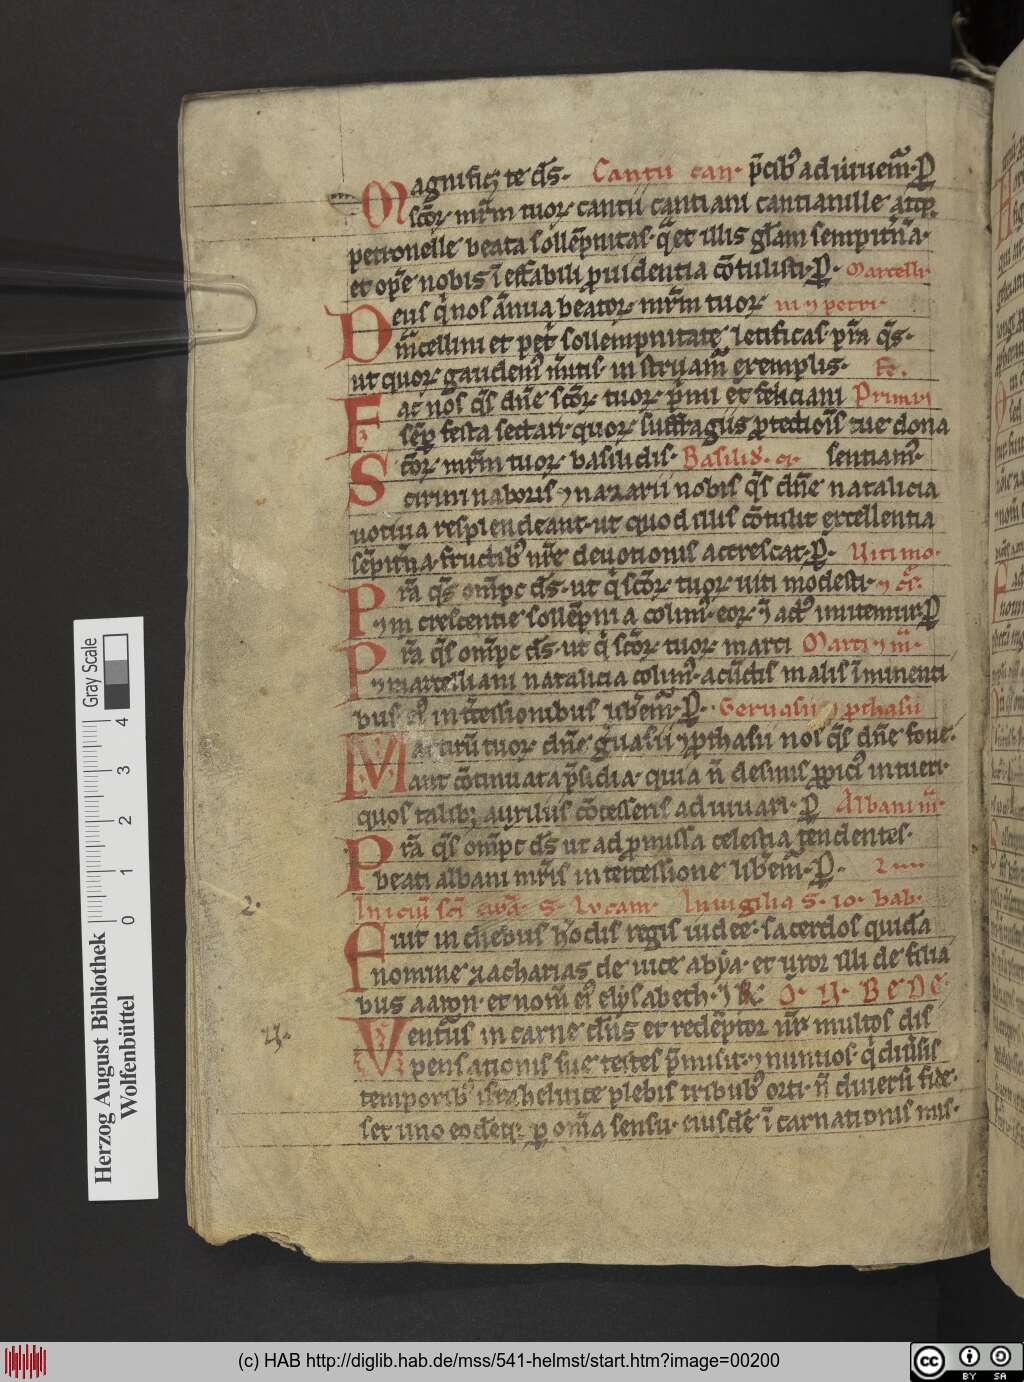 Magnific; te ds̄. Cantii can. p̄cib⁹ adiuuem̄. P̱
scōr. mr̄m tuor. cantii cantiani cantianille atq̨.
petronelle beata sollēpnitas. q̄ et illis glām sempit̄na.
et opē nobis īeffabili prouidentia cōtulisti. P̱. Marcelli
Deus q̇ nos ānua beator. mr̄m tuor. ni ⁊ petri.
m̄cellini et pet̄ sollempnitate letificas. pr̄a qs̄.
ut quor. gaudem⁹ m̄itis. instruam̄ exemplis. fe.
Fac nōs qs̄ dn̄e scōr. tuor. p̄mi et feliciani Primi
sēp festa sectari. quor. suffragiis ꝓtectiōis tue dona
Scōr. mr̄m tuor. basilidis. Basilid. cr. sentiam⁹.
cirini naboris ⁊ nazarii nobis qs̄ dn̄e natalicia
uotiua resplendeant. ut quod illis cōtulit excellentia
sēpit̄na. fructib⁹ nr̄e deuotionis accrescat. P̱. Uiti mo.
Pr̄a qs̄ omp̄c ds̄. ut q̇ scōr. tuor. uiti modesti. ⁊ cr̄.
⁊ crescentie sollēpnia colim⁹. eor. ⁊ adi⁹ muniemur P̱
Pr̄a qs̄ omp̄c ds̄. ut q̇ scōr. tuor. marci Marci ⁊ m̄.
⁊ marcelliani natalicia colim⁹. a cūctis malis īminenti
bus eor. int̄cessionibus lib̄em̄. P̱. Geruasii ⁊ ꝓthasii
Martirū tuor. dn̄e ḡuasii ⁊ ꝓthasii nos qs̄ dn̄e foue.
ant cōtinuata p̄sidia. quia n̄ desinis ꝓpici⁹ intueri.
quos talib; auxiliis cōcesseris adiuuari. P̱ Albani m̄.
Pr̄a qs̄ omp̄c ds̄ ut ad ꝓmissa celestia tendentes.
beati albani mr̄is intercessione lib̄em̄. P̱.
2. Iniciū sc̄i ewā. S. Lucam. In uigilia S. io. bab.
Fuit in diebus hōdis regis iudee. sacerdos quidā
nomine zacharias de uice abya. et uxor illi de filia
bus aaron. et nom̄ ei⁹ elysabeth.
Ventur⁹ in carne dn̄s et redēptor nr̄. multos dis
pensationis sue testes p̄misit. ⁊ nuntios. q̇ diu̇sis
temporib⁹ israhelitice plebis tribub⁹ orti. n̄ diuersi fide.
set uno eodēq; p omīa sensu. eiusdē īcarnationis mis.
Gray Scale
0 1 2 3 4
Herzog August Bibliothek
Wolfenbüttel
(c) HAB http://diglib.hab.de/mss/541-helmst/start.htm?image=00200
cc BY SA